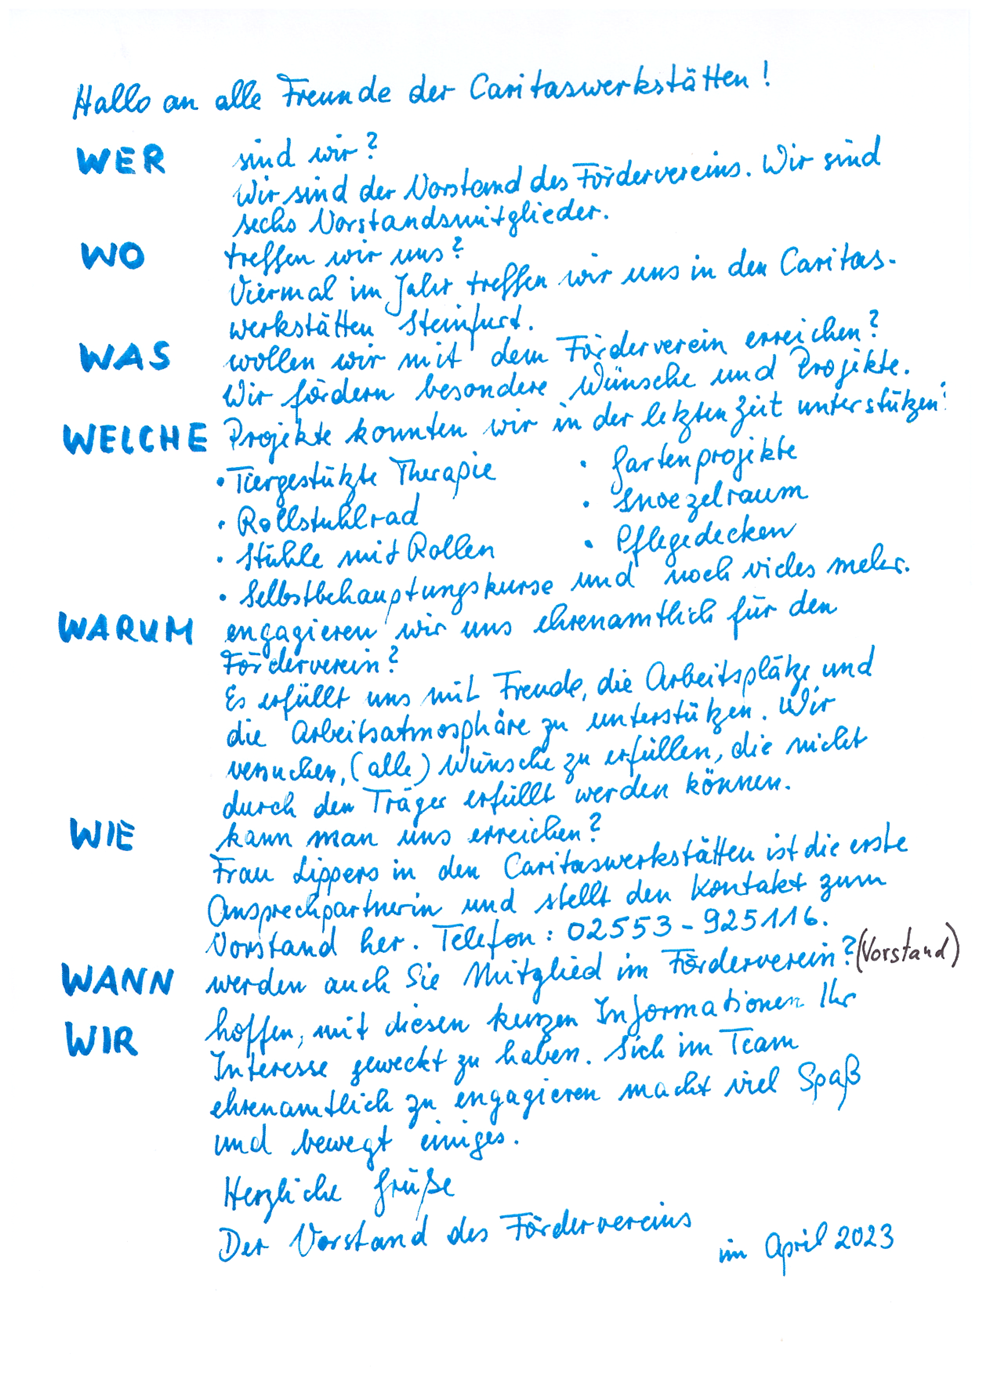 Hallo an alle Freunde der Caritaswerkstätten!
WER sind wir?
Wir sind der Vorstand des Fördervereins. Wir sind
sechs Vorstandsmitglieder.
WO treffen wir uns?
Viermal im Jahr treffen wir uns in den Caritas-
werkstätten Steinfurt.
WAS wollen wir mit dem Förderverein erreichen?
Wir fördern besondere Wünsche und Projekte.
WELCHE Projekte konnten wir in der letzten Zeit unterstützen:
• Tiergestützte Therapie • Gartenprojekte
• Rollstuhlrad • Snoezelraum
• Stühle mit Rollen • Pflegedecken
• Selbstbehauptungskurse und noch vieles mehr.
WARUM engagieren wir uns ehrenamtlich für den
Förderverein?
Es erfüllt uns mit Freude, die Arbeitsplätze und
die Arbeitsatmosphäre zu unterstützen. Wir
versuchen, (alle) Wünsche zu erfüllen, die nicht
durch den Träger erfüllt werden können.
WIE kann man uns erreichen?
Frau Lippers in den Caritaswerkstätten ist die erste
Ansprechpartnerin und stellt den Kontakt zum
Vorstand her. Telefon: 02553-925116.
WANN werden auch Sie Mitglied im Förderverein? (Vorstand)
WIR hoffen, mit diesen kurzen Informationen Ihr
Interesse geweckt zu haben. Sich im Team
ehrenamtlich zu engagieren macht viel Spaß
und bewegt einiges.
Herzliche Grüße
Der Vorstand des Fördervereins
im April 2023